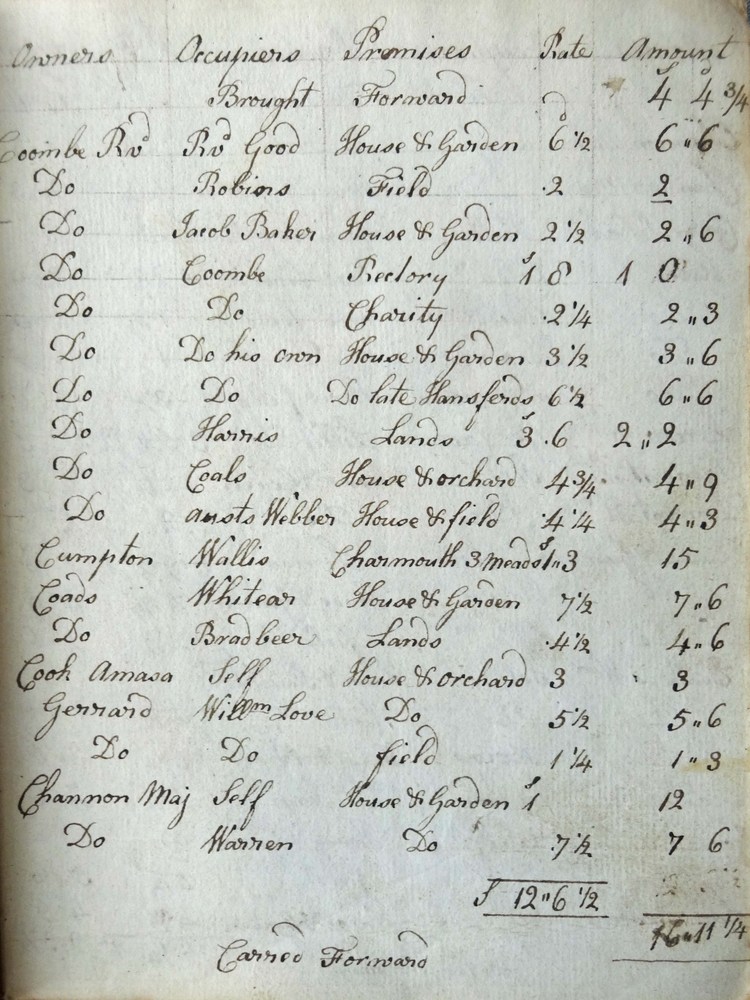 Owners Occupiers Premises Rate Amount
Brought Forward 4 4 3/4
Coombe Rvd Rvd Good House & Garden 6 1/2 6 " 6
Do Robins Field .2 2
Do Jacob Baker House & Garden 2 1/2 2 " 6
Do Coombe Rectory 1 8 1 0
Do Do Charity .2 1/4 2 " 3
Do Do his own House & Garden 3 1/2 3 " 6
Do Do Do late Hansferds 6 1/2 6 " 6
Do Harris Lands 3 .6 2 " 2
Do Coals House & orchard 4 3/4 4 " 9
Do austs Webber House & field .4 1/4 4 " 3
Cumpton Wallis Charmouth 3 meads 1 " 3 15
Coads Whitear House & Garden 7 1/2 7 " 6
Do Bradbeer Lands .4 1/2 4 " 6
Cook Amasa Self House & orchard 3 3
Gerrard Willm Love Do 5 1/2 5 " 6
Do Do field 1 1/4 1 " 3
Channon Maj Self House & Garden 1 12
Do Warren Do .7 1/2 7 6
12 " 6 1/2
11 1/4
Carred Forward